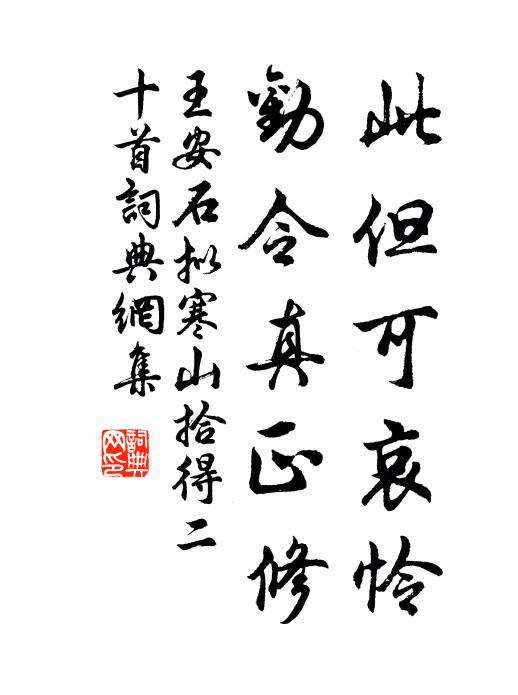 此但可哀怜
勸令真正修
王安石拟寒山拾得二
十首詞典網集
詞典
网印